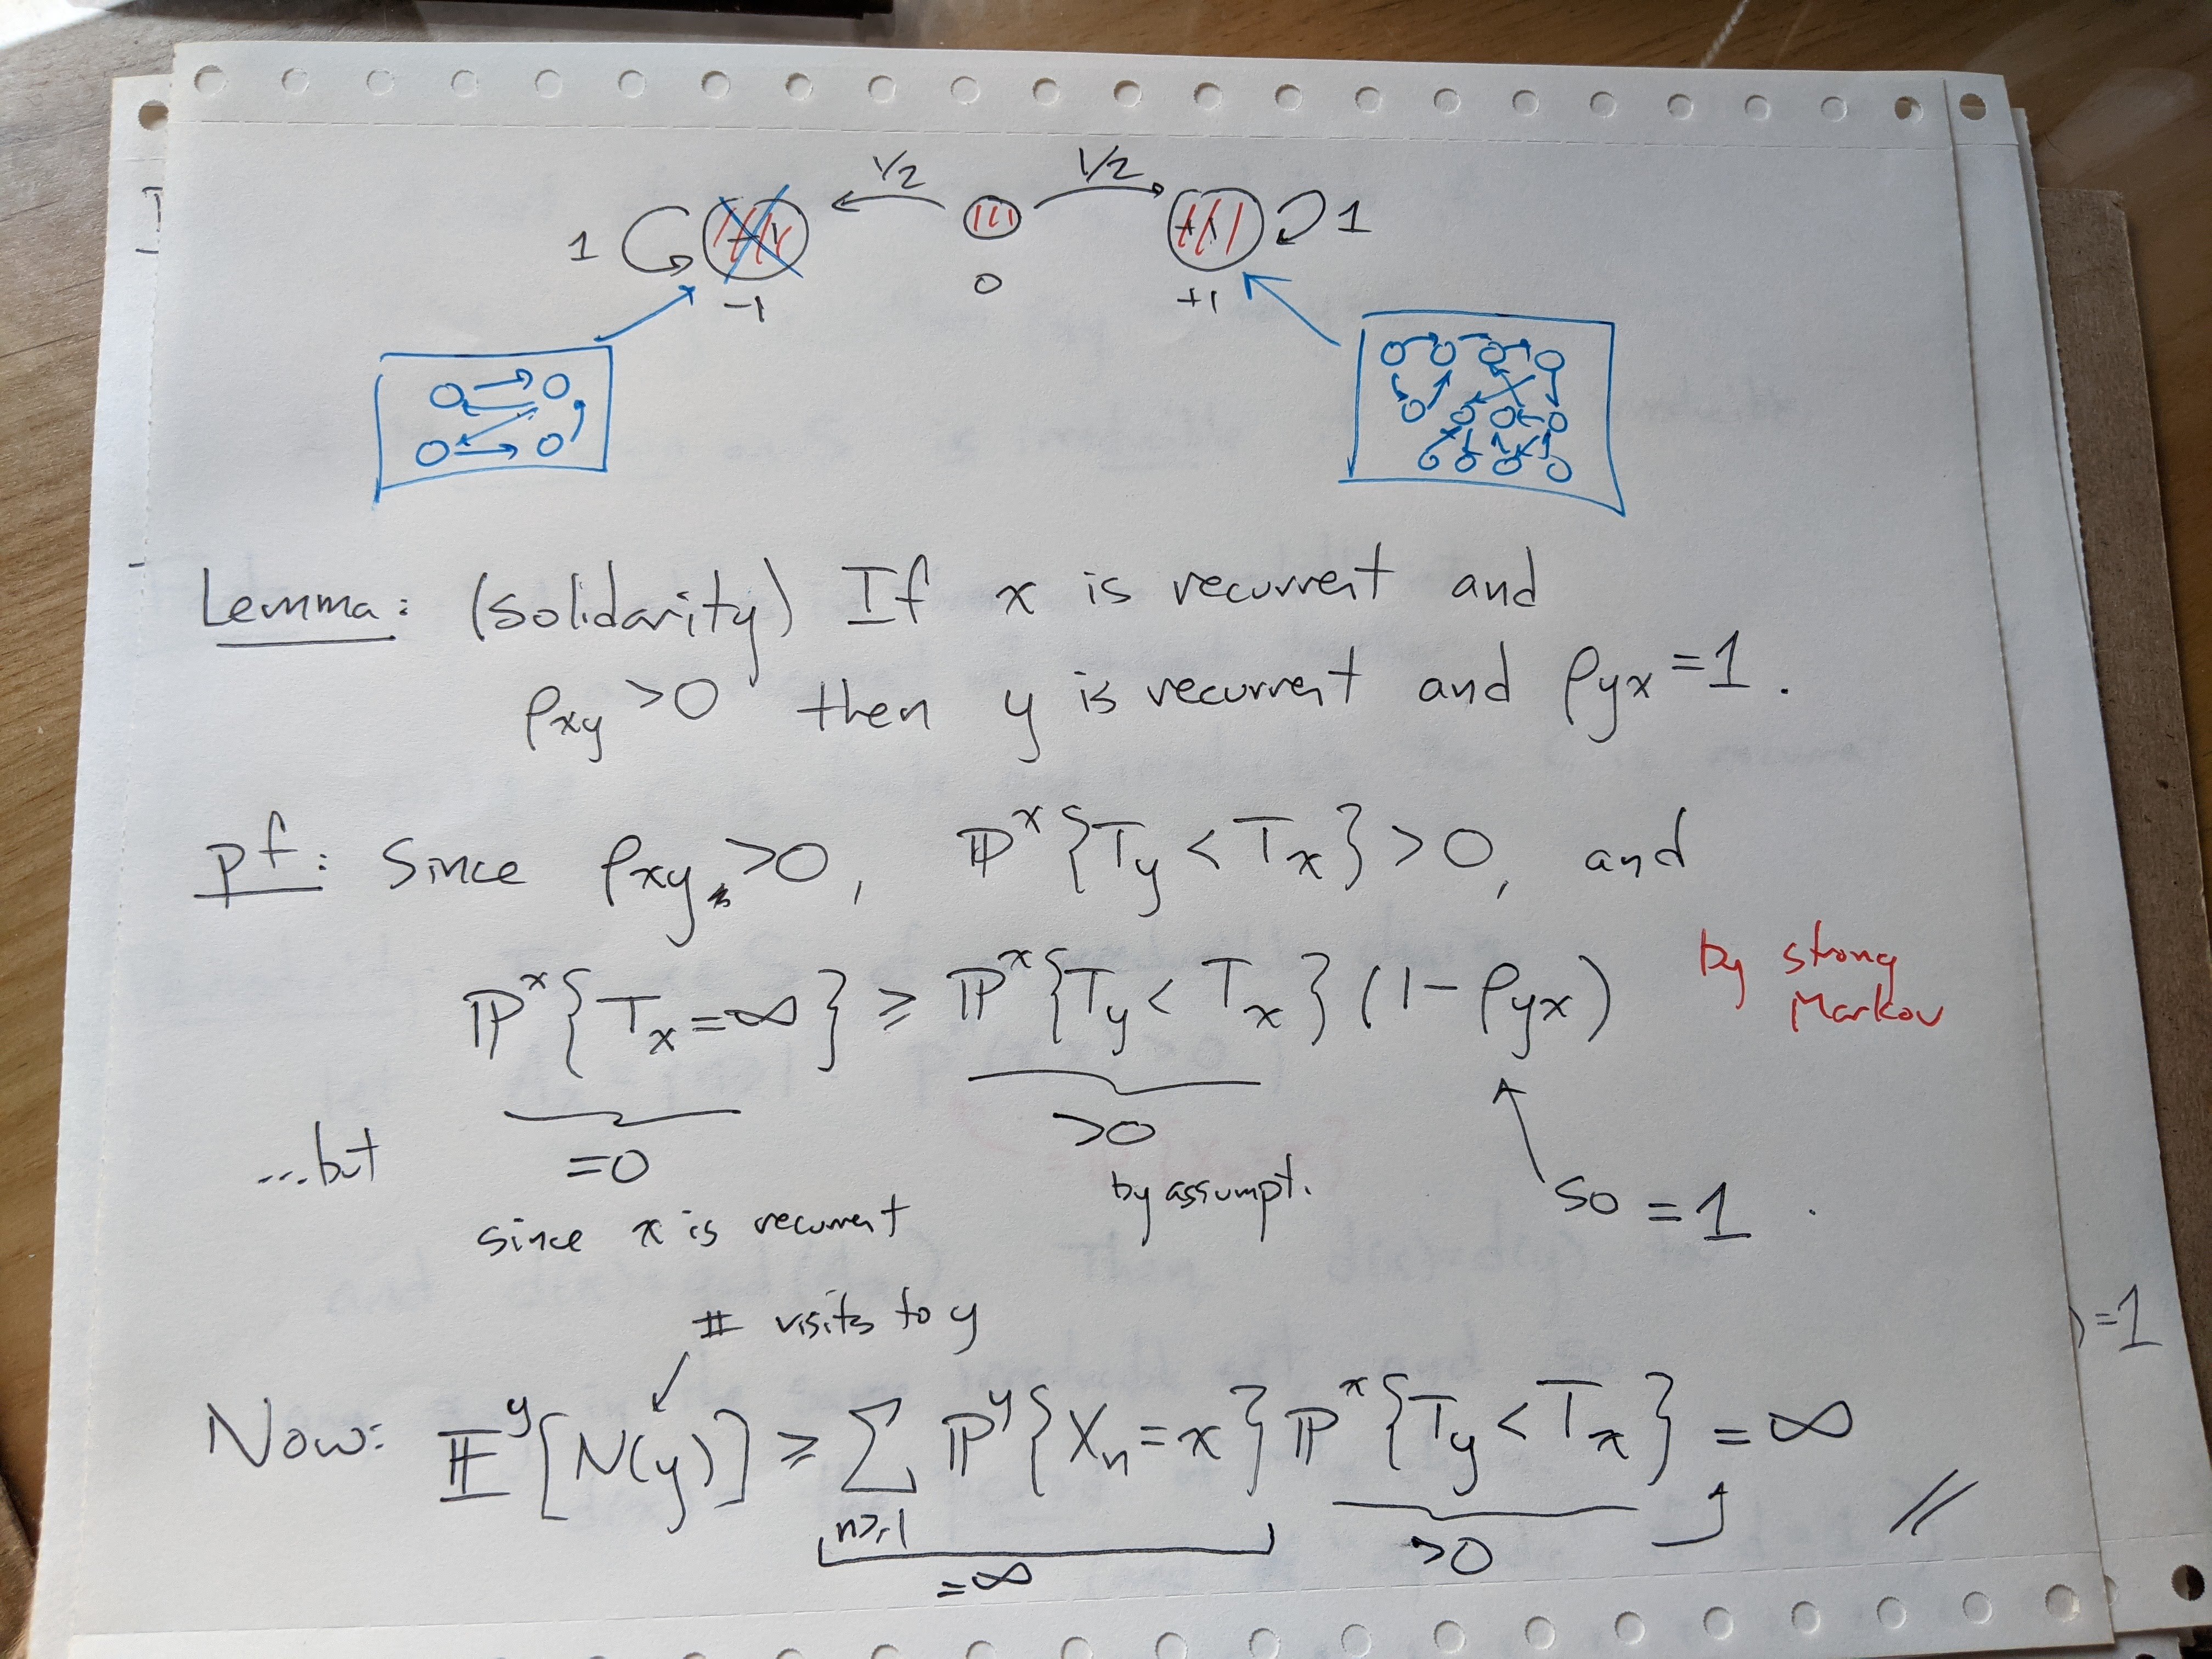 1/2 1/2
1 1
-1 0 +1
Lemma: (solidarity) If x is recurrent and
ρxy > 0 then y is recurrent and ρyx = 1.
pf: Since ρxy > 0, ℙ^x{T_y < T_x} > 0, and
ℙ^x{T_x = ∞} ≥ ℙ^x{T_y < T_x} (1 - ρyx) by strong Markov
...but = 0 > 0
since x is recurrent by assumpt. so = 1.
# visits to y
Now: 𝔼^y[N(y)] ≥ Σ_{n≥1} ℙ^y{X_n = x} ℙ^x{T_y < T_x} = ∞ //
= ∞ > 0
=1